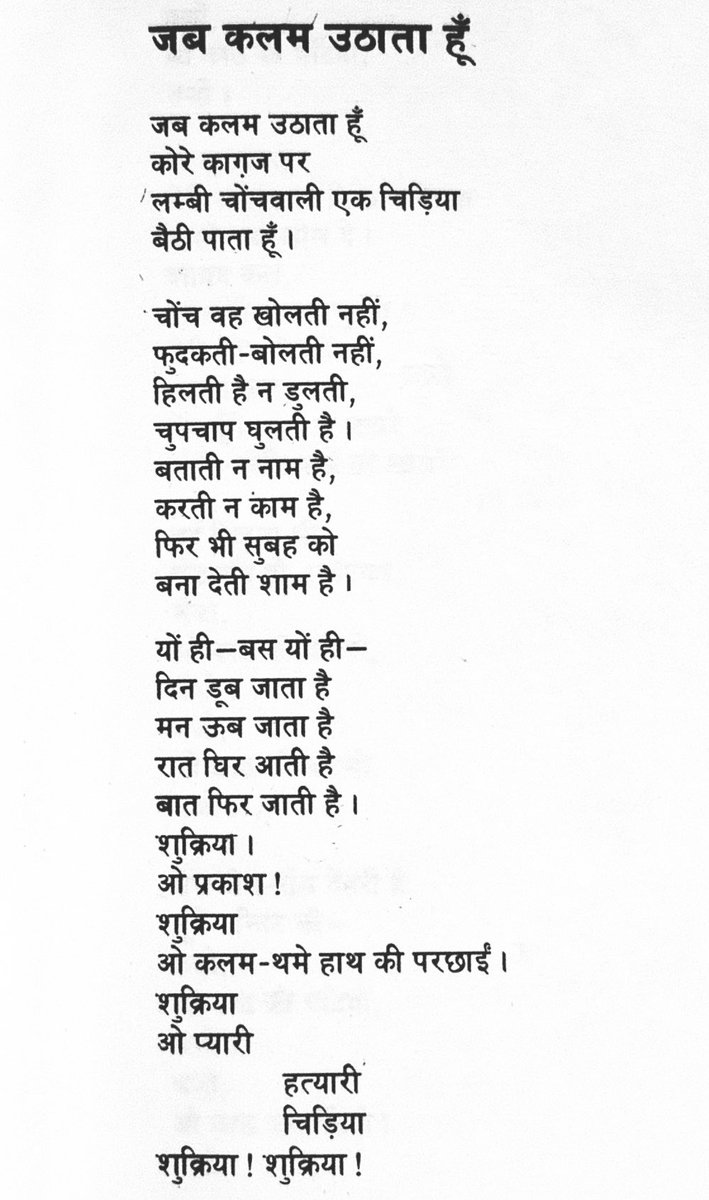 जब कलम उठाता हूँ
जब कलम उठाता हूँ
कोरे काग़ज पर
लम्बी चोंचवाली एक चिड़िया
बैठी पाता हूँ।
चोंच वह खोलती नहीं,
फुदकती-बोलती नहीं,
हिलती है न डुलती,
चुपचाप घुलती है।
बताती न नाम है,
करती न काम है,
फिर भी सुबह को
बना देती शाम है।
यों ही—बस यों ही—
दिन डूब जाता है
मन ऊब जाता है
रात घिर आती है
बात फिर जाती है।
शुक्रिया।
ओ प्रकाश!
शुक्रिया
ओ कलम-थमे हाथ की परछाईं।
शुक्रिया
ओ प्यारी
हत्यारी
चिड़िया
शुक्रिया! शुक्रिया!